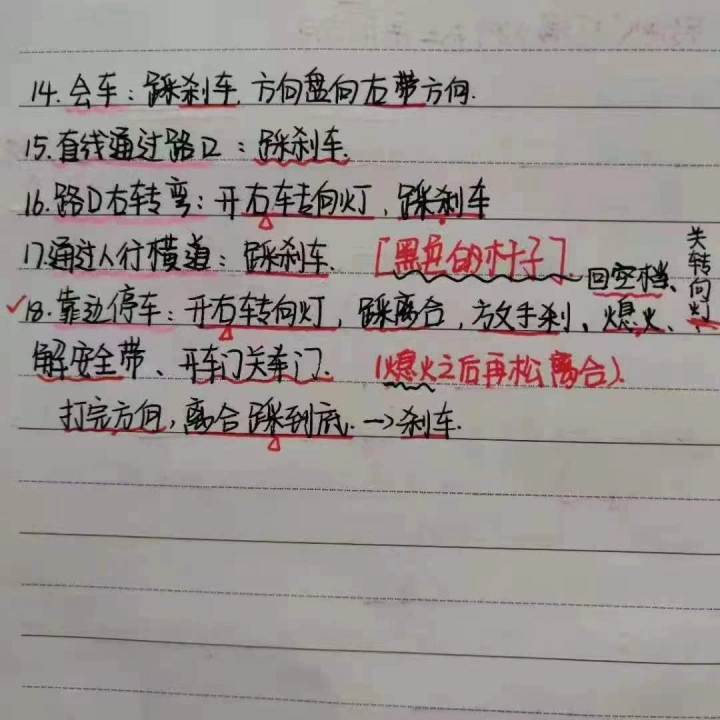 14. 会车：踩刹车, 方向盘向右带方向.
15. 直线通过路口：踩刹车.
16. 路口右转弯：开右车转向灯, 踩刹车
17. 通过人行横道：踩刹车. [黑色的杆子]
回空档、
关转向灯
✓18. 靠边停车：开右转向灯, 踩离合, 放手刹、熄火、
解安全带、开车门关车门. (熄火之后再松离合).
打完方向, 离合踩到底. → 刹车.